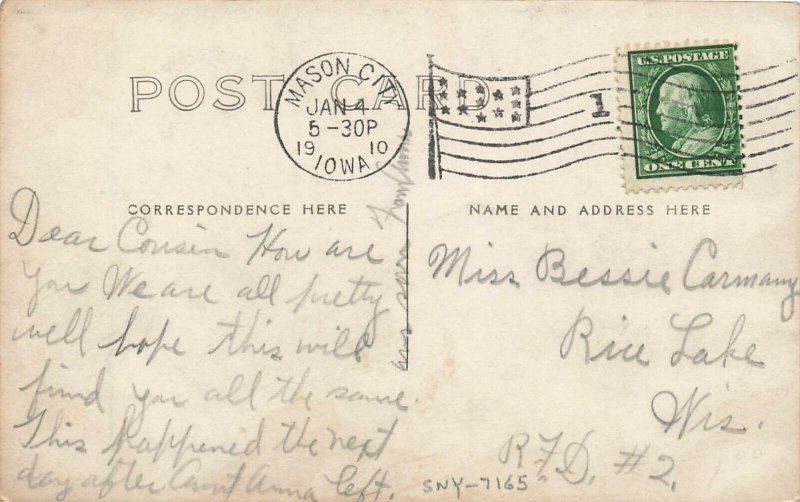 POST CARD
MASON CITY
JAN 4
5-30P
19 10
IOWA
1
U.S. POSTAGE
ONE CENT
CORRESPONDENCE HERE
NAME AND ADDRESS HERE
Dear Cousin How are
you We are all pretty
well hope this will
find you all the same.
This happened the next
day after Aunt Anna left.
Miss Bessie Carmany
Rice Lake
Wis.
R.F.D. #2.
SNY-7165